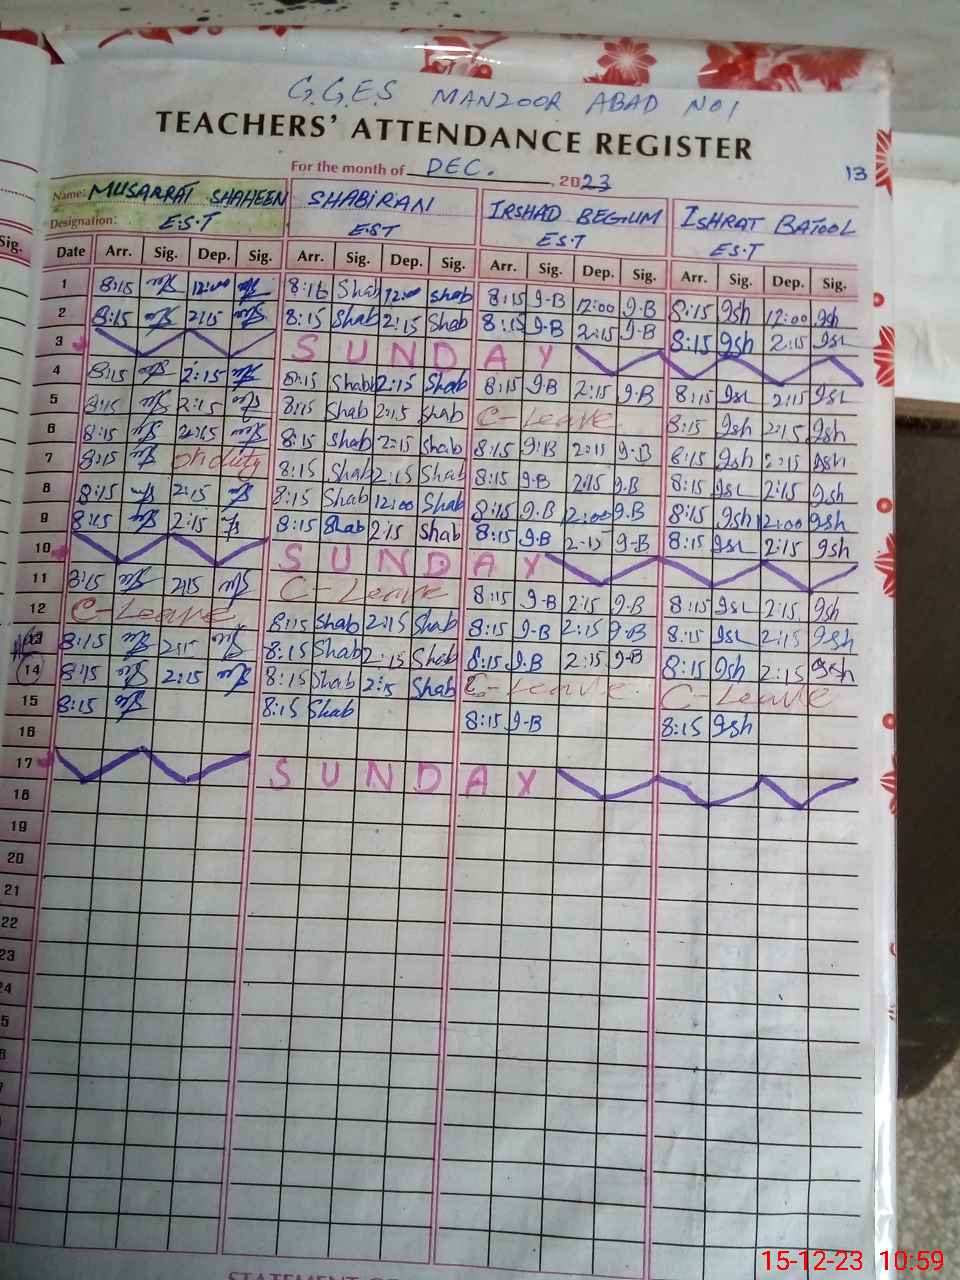 G.G.E.S MANZOOR ABAD NO1
TEACHERS' ATTENDANCE REGISTER
For the month of DEC. , 2023
13
Name: MUSARRAT SHAHEEN SHABIRAN IRSHAD BEGUM ISHRAT BATOOL
Designation: E.S.T EST E.S.T E.S.T
Sig. Date Arr. Sig. Dep. Sig. Arr. Sig. Dep. Sig. Arr. Sig. Dep. Sig. Arr. Sig. Dep. Sig.
1 8:15 12:00 8:16 Shab 12:00 Shab 8:15 I-B 12:00 I.B 8:15 Ish 12:00 Ish
2 8:15 2:15 8:15 Shab 2:15 Shab 8:15 I-B 2:15 I-B 8:15 Ish 2:15 Ish
3 SUNDAY
4 8:15 2:15 8:15 Shab 2:15 Shab 8:15 I-B 2:15 I-B 8:15 Ish 2:15 Ish
5 8:15 2:15 8:15 Shab 2:15 Shab C-Leave 8:15 Ish 2:15 Ish
6 8:15 2:15 8:15 Shab 2:15 Shab 8:15 I.B 2:15 I-B 8:15 Ish 2:15 Ish
7 8:15 on duty 8:15 Shab 2:15 Shab 8:15 I-B 2:15 I-B 8:15 Ish 2:15 Ish
8 8:15 2:15 8:15 Shab 12:00 Shab 8:15 I-B 12:00 I-B 8:15 Ish 12:00 Ish
9 8:15 2:15 8:15 Shab 2:15 Shab 8:15 I-B 2:15 I-B 8:15 Ish 2:15 Ish
10 SUNDAY
11 8:15 2:15 C-Leave 8:15 I-B 2:15 I-B 8:15 Ish 2:15 Ish
12 C-Leave 8:15 Shab 2:15 Shab 8:15 I-B 2:15 I-B 8:15 Ish 2:15 Ish
13 8:15 2:15 8:15 Shab 2:15 Shab 8:15 I-B 2:15 I-B 8:15 Ish 2:15 Ish
14 8:15 2:15 8:15 Shab 2:15 Shab C-Leave C-Leave
15 8:15 8:15 Shab 8:15 I-B 8:15 Ish
16
17 SUNDAY
18
19
20
21
22
23
24
15-12-23 10:59